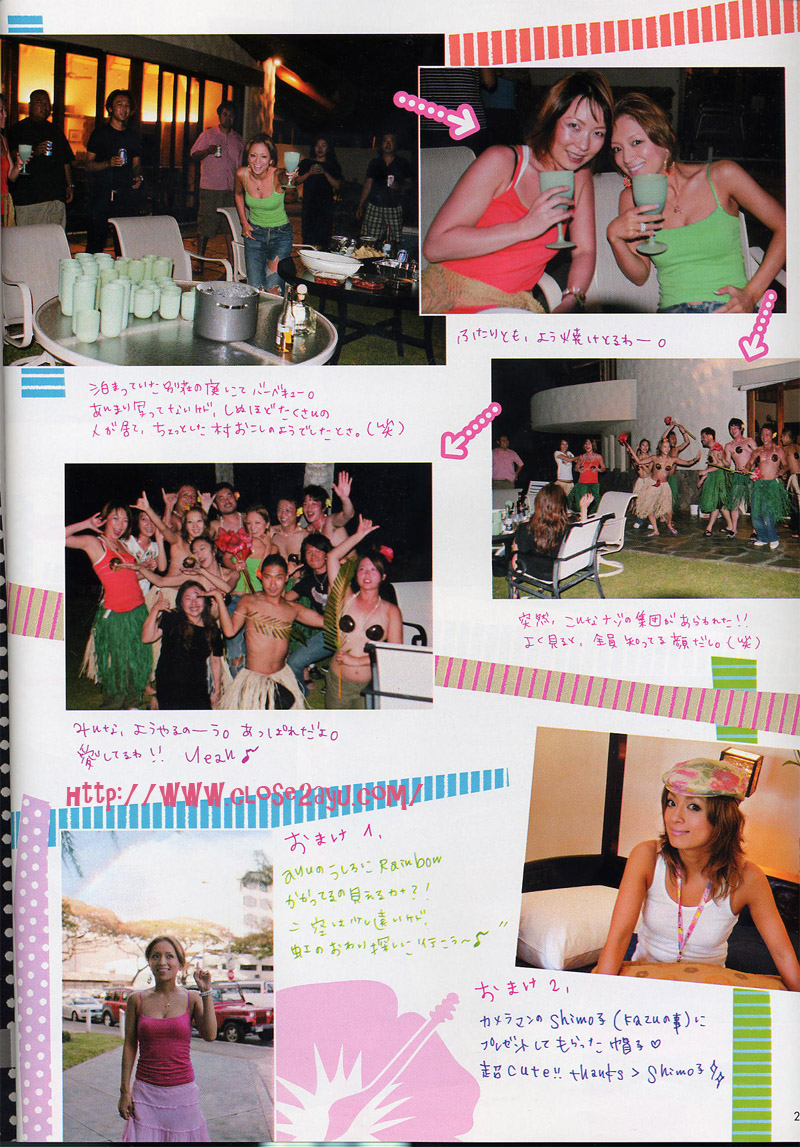 ふたりとも、よう焼けとるわー。
泊まっていた別荘の庭にてバーベキュー。
あんまり写ってないけど、しぬほどたくさんの
人が居て、ちょっとした村おこしのようでしたとさ。(笑)
突然、こんなナゾの集団があらわれた!!
よく見ると、全員知ってる顔だし。(笑)
みんな、ようやるのーう。あっぱれだよ。
愛してるわ!! Yeah♪
Http://WWW.CLOSE2ayu.COM/
おまけ1,
ayuのうしろにRainbow
かかってるの見えるカナ?!
空は少し遠いけど、
虹のおわり探しに行こう〜♪"
おまけ2,
カメラマンのShimo子(Kazuの事)に
プレゼントしてもらった帽子♡
超cute!! thanks > Shimo子
2